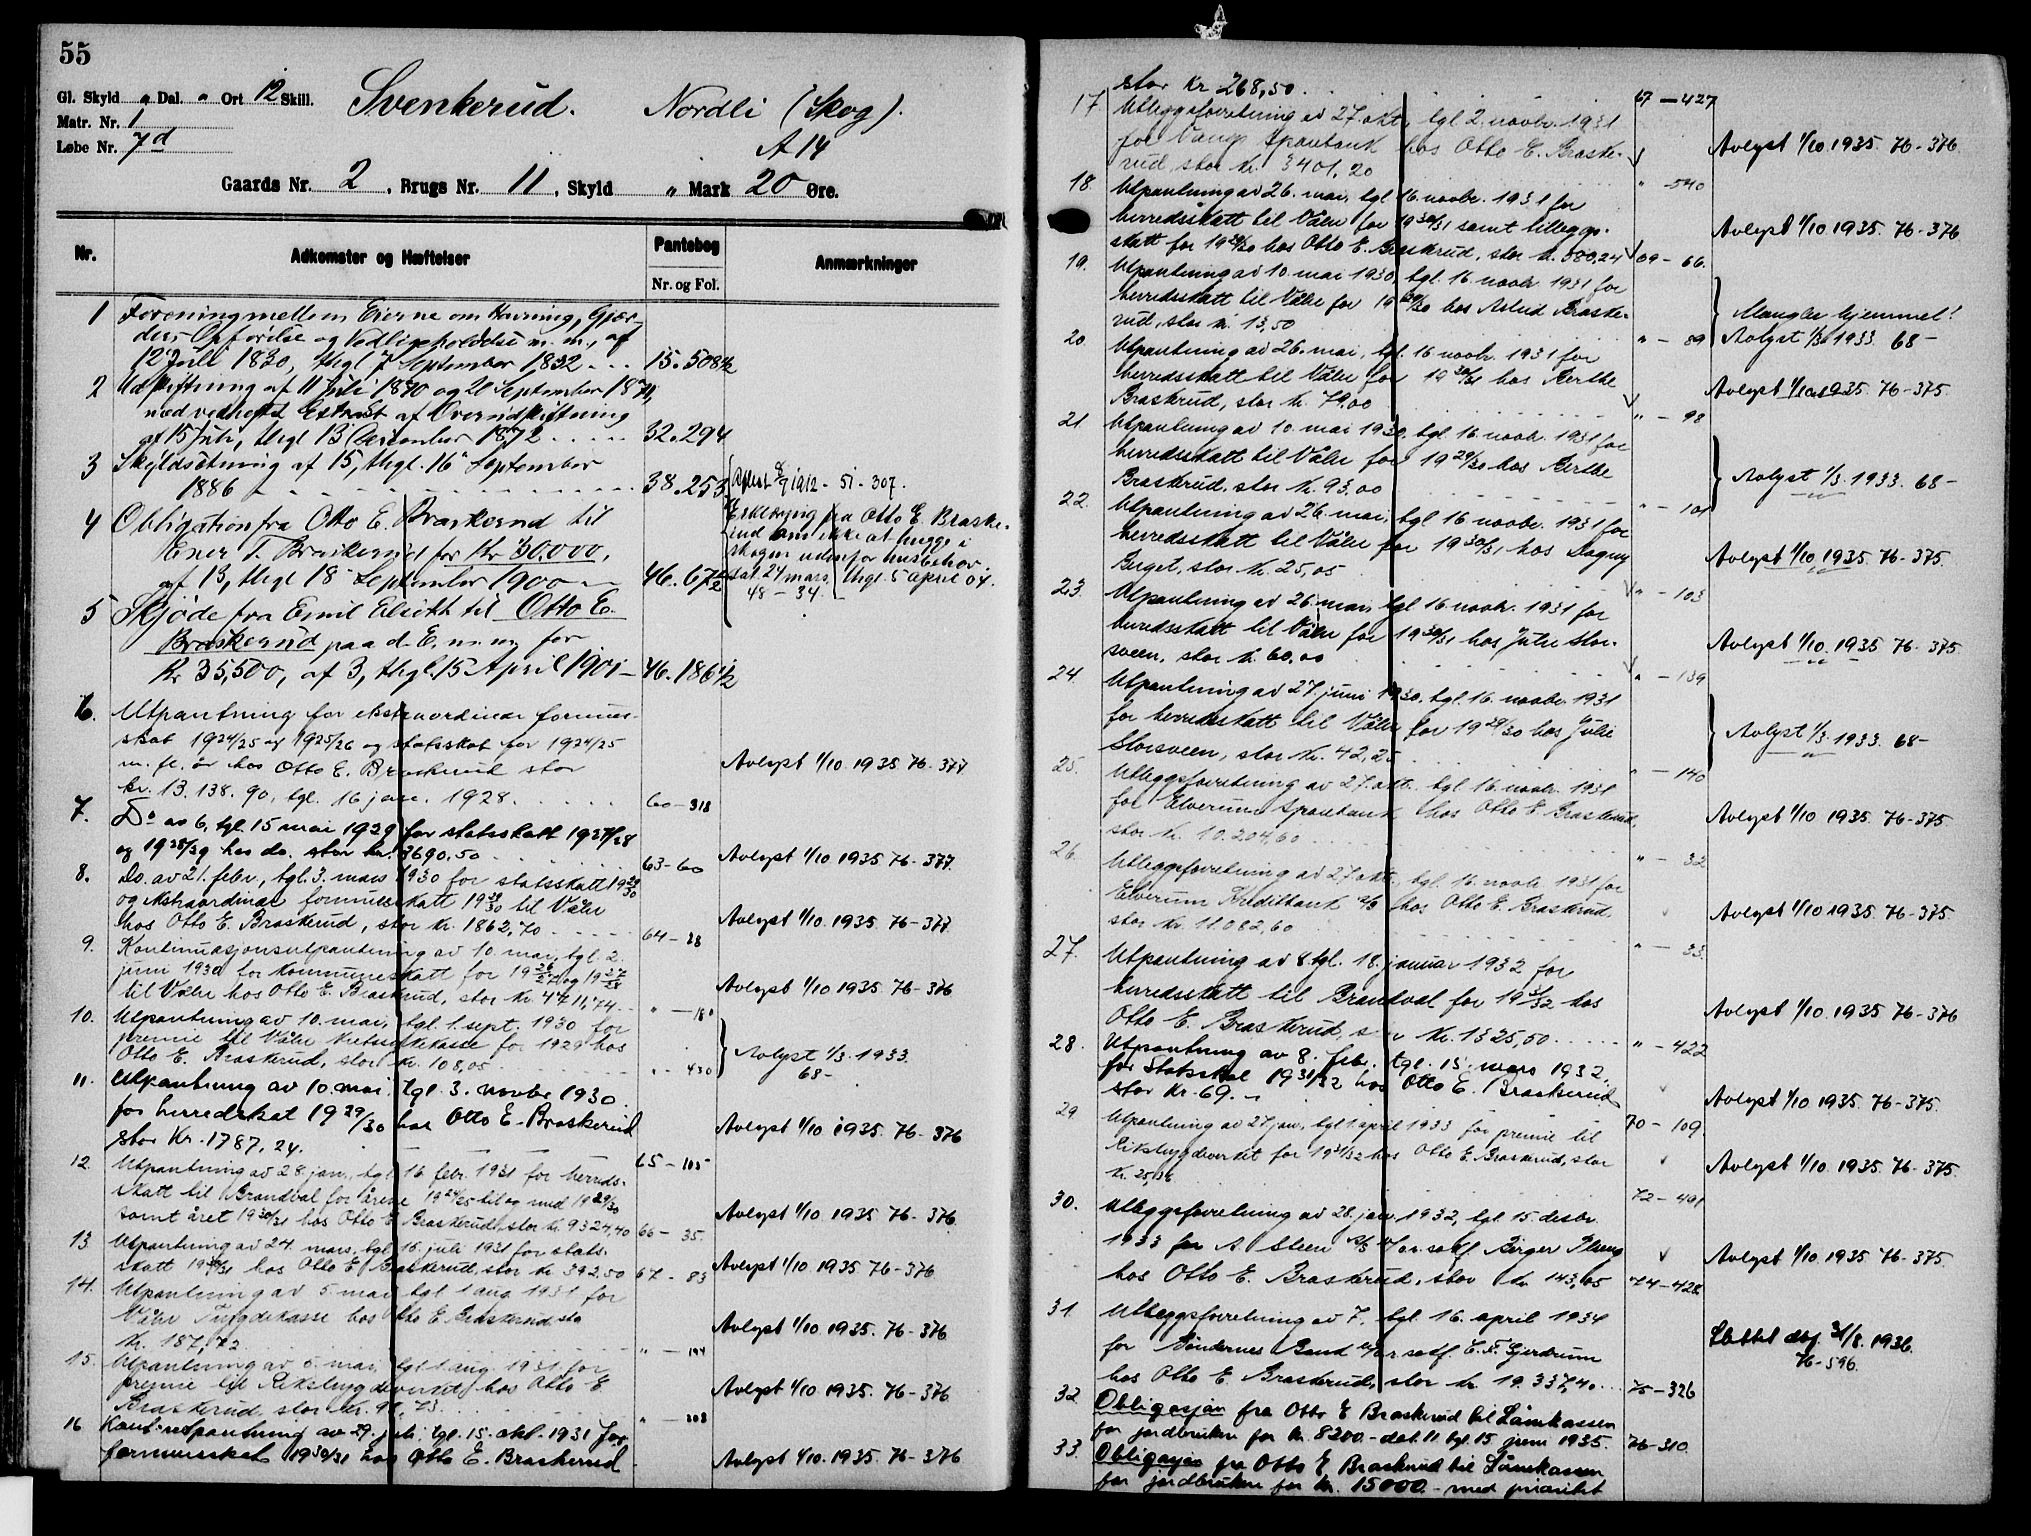 55
Gl. Skyld " Dal. " Ort 12 Skill.
Svenkerud. Nordli (Skog).
Matr. Nr. 1
Løbe Nr. 7d
A 14
Gaards Nr. 2, Brugs Nr. 11, Skyld " Mark 20 Øre.
Nr. Adkomster og Hæftelser Pantebog Nr. og Fol. Anmærkninger
1 Forening mellem Eierne om Havning, Gjær-
des Opførelse og Vedligeholdelse m. m., af
12 Juli 1830, thgl 7 September 1832 15.508½
2 Udskiftning af 11 Juli 1870 og 21 September 1871,
med vedheftet Extrakt af Overudskiftning
af 15 Juli, thgl 13 December 1872 32.294
3 Skyldsetning af 15, thgl. 16 September
1886 38.253
4 Obligation fra Otto E. Braskerud til
Ener T. Braskerud for Kr 30.000,
af 13, thgl 18 September 1900 46.67½
Aflest 8/7 1912 - 51 - 307.
Erklæring fra Otto E. Braske-
rud om ikke at hugge i
skogen udenfor husbehov.
dat. 24 mars, thgl. 5 april 04.
48 - 34.
5 Skjøde fra Emil Elsikt til Otto E.
Braskerud paa d. E. m. m. for
Kr 35,500, af 3, thgl. 15 April 1901 46.186½
6. Utpantning for ekstraordinær formues-
skat 1924/25 og 1925/26 og statsskat for 1924/25
m. fl. år hos Otto E. Braskerud stor
kr. 13.138.90, tgl. 16 jan. 1928. 60-318
Avlyst 1/10. 1935. 76-377
7. Do av 6, tgl. 15 mai 1929 for statsskatt 1927/28
og 1928/29 hos do. stor kr. 3690,50 63-60
Avlyst 1/10 1935 76-377.
8. Do. av 21. febr, tgl. 3. mars 1930 for statsskatt 1929/30
og ekstraordinær formuesskatt 1929/30 til Våler
hos Otto E. Braskerud, stor kr. 1862,70 64-38
Avlyst 1/10. 1935. 76-377
9. Kontinuasjonsutpantning av 10. mai, tgl. 2.
juni 1930 for kommuneskatt for 1926/27 og 1927/28
til Våler hos Otto E. Braskerud, stor kr. 4711,74 " - 180
Avlyst 1/10 1935 76-376
10. Utpantning av 10. mai, tgl. 1. sept. 1930 for
premie til Våler kretssykekasse for 1929 hos
Otto E. Braskerud, stor kr. 108,05 " - 430
Avlyst 1/3 1933.
68-
11. Utpantning av 10. mai. tgl. 3. novbr 1930
for herredskat 1929/30 hos Otto E. Braskerud
stor Kr. 1787,24. 65-105
Avlyst 1/10 1935. 76-376
12. Utpantning av 28. jan., tgl. 16 febr. 1931 for herreds-
skatt til Brandval for årene 1924/25 til og med 1929/30
samt året 1930/31 hos Otto E. Braskerud, stor kr. 9324,40 66-35.
Avlyst 1/10 1935 76-376
13. Utpantning av 24. mars, tgl. 15. juli 1931 for stats-
skatt 1930/31 hos Otto E. Braskerud, stor kr 392,50 67-83
Avlyst 1/10 1935. 76-376
14. Utpantning av 5. mai tgl 1 aug 1931 for
Våler Trygdekasse hos Otto E. Braskerud sto
kr. 187,72 " - 194
Avlyst 1/10 1935. 76-376
15. Utpantning av 5. mai, tgl. 1. aug. 1931 for
premie til Riksbygdeverket hos Otto E
Braskerud, stor kr. " - 208
Avlyst 1/10 1935. 76-376
16 Kont. utpantning av 29. juli, tgl. 15. okt. 1931 for
formuesskat 1930/31 hos Otto E. Braskerud
Avlyst 1/10. 1935. 76-376
stor Kr 268,50. 67-427
17. Utleggsforretning av 27. okt, tgl 2. novbr. 1931
for Vang Sparebank hos Otto E. Braske-
rud, stor kr. 3401,20 " - 540
Avlyst 1/10. 1935. 76-376
18. Utpantning av 26. mai, tgl. 16. novbr. 1931 for
herredsskatt til Våler for 1930/31 samt tilleggs-
skatt for 1929/30 hos Otto E. Braskerud, stor kr. 580,24 69-66.
Avlyst 1/10 1935. 76-376
19. Utpantning av 10. mai 1930, tgl. 16. novbr. 1931 for
herredsskatt til Våler for 1929/30 hos Astrid Braske-
rud, stor kr. 13,50 " - 89
Mangler hjemmel!
Avlyst 1/3 1933. 68-
20. Utpantning av 26. mai, tgl. 16 novbr. 1931 for
herredsskatt til Våler for 1930/31 hos Berthe
Braskerud, stor kr. 79,00 " - 98
Avlyst 1/10 1935. 76-375.
21. Utpantning av 10. mai 1930, tgl. 16. novbr. 1931 for
herredsskatt til Våler for 1929/30 hos Berthe
Braskerud, stor kr. 93,00 " - 101
Avlyst 1/3. 1933. 68-
22. Utpantning av 26. mai, tgl 16 novbr. 1931 for
herredsskatt til Våler for 1930/31 hos Dagny
Berget, stor kr. 25,05 " - 103
Avlyst 1/10, 1935. 76-375.
23. Utpantning av 26. mai, tgl 16 novbr. 1931 for
herredsskatt til Våler for 1930/31 hos Julie Stor-
sveen, stor kr. 60,00 " - 139
Avlyst 1/10. 1935 76-375.
24. Utpantning av 27. juni 1930, tgl. 16. novbr. 1931
for herredsskatt til Våler for 1929/30 hos Julie
Storsveen, stor kr. 42,25 " - 140
Avlyst 1/3 1933. 68-
25. Utleggsforretning av 27. okt. tgl. 16. novbr. 1931
for Elverum Sparebank hos Otto E. Braskerud,
stor kr. 10.204,60 " - 32
Avlyst 1/10 1935. 76-375.
26. Utleggsforretning av 27. okt, tgl. 16. novbr 1931 for
Elverum Kreditbank A/S hos Otto E. Braskerud,
stor kr. 11.082,60 " - 33.
Avlyst 1/10 1935. 76-375.
27. Utpantning av 8 tgl. 18. januar 1932 for
herredsskatt til Brandval for 1931/32 hos
Otto E. Braskerud, stor kr. 1325,50 " - 422
Avlyst 1/10. 1935. 76-376
28. Utpantning av 8. febr. tgl. 15. mars 1932.
for Statsskat 1931/32 hos Otto E. Braskerud
stor Kr. 69.- 70-109.
Avlyst 1/10 1935. 76-375.
29. Utpantning av 27. jan, tgl 1. april 1933 for premie til
Riksbygdeverket for 1931/32 hos Otto E. Braskerud, stor
kr. 25,36 72-491
Avlyst 1/10. 1935. 76-375.
30. Utleggsforretning av 28. jan. 1932, tgl. 15. desbr.
1933 for A. Steen A/S v/o.r.sakf. Birger Pleng
hos Otto E. Braskerud, stor kr 143,65 74-428
Avlyst 1/10 1935 76-375.
31. Utleggsforretning av 7. tgl. 16. april 1934
for Bøndernes Bank v/o.r.sakf. E. F. Gjerdrum
hos Otto E. Braskerud, stor kr. 19.337,40 75-326
Slettet dbf. 31/8. 1936.
76-596.
32. Obligasjon fra Otto E Braskerud til Lånekassen
for jordbrukere for kr. 8200.- dat. 11 tgl. 15 juni 1935. 76-310.
33. Obligasjon fra Otto E Braskerud til Lånekassen
for jordbrukere for kr. 15000.- med prioritet